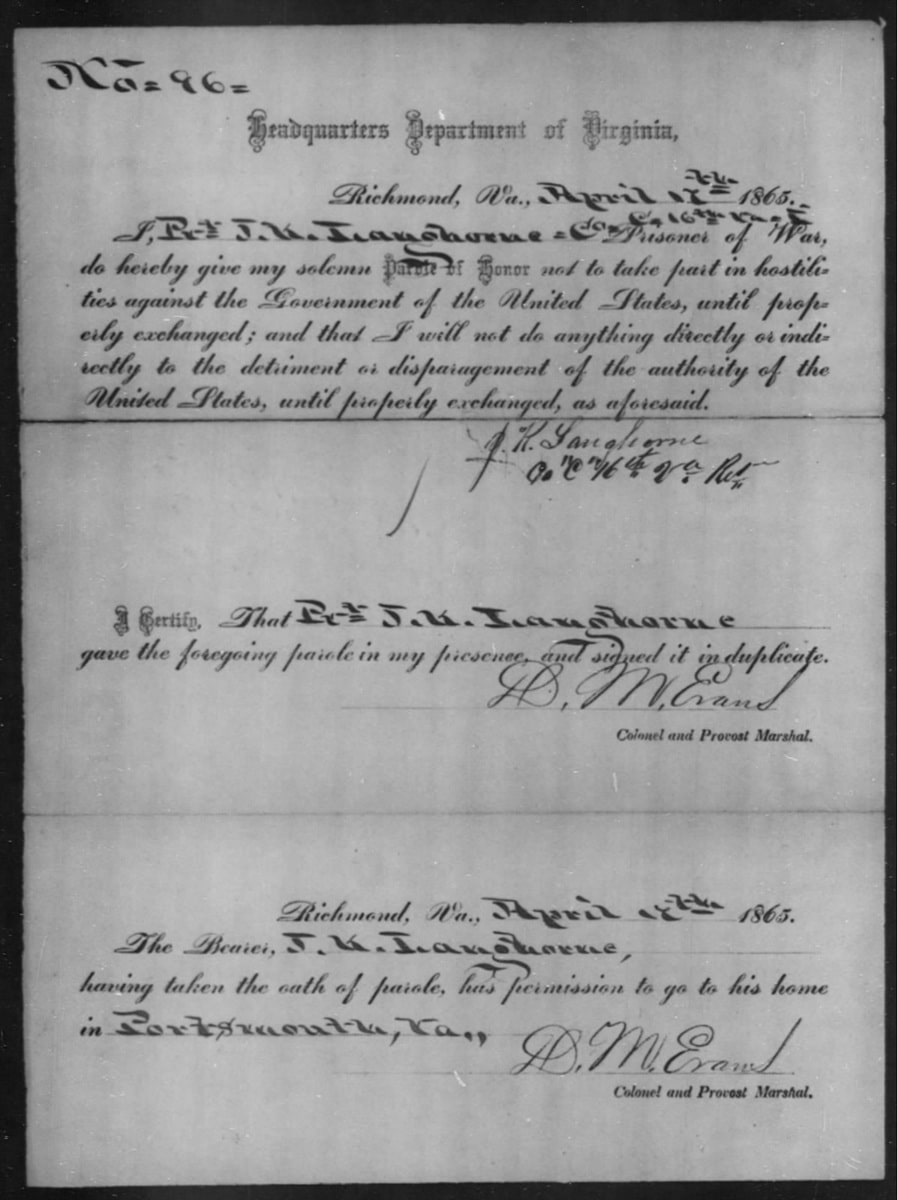 No = 96 =
Headquarters Department of Virginia,
Richmond, Va., April 17th 1865.
I, Prt J. K. Langhorne = Co. C, 16th Va. I Prisoner of War,
do hereby give my solemn Parole of Honor not to take part in hostili-
ties against the Government of the United States, until prop-
erly exchanged; and that I will not do anything directly or indi-
rectly to the detriment or disparagement of the authority of the
United States, until properly exchanged, as aforesaid.
J. K. Langhorne
Co "C" 16th Va Ret
I Certify, That Prt J. K. Langhorne
gave the foregoing parole in my presence, and signed it in duplicate.
D. M. Evans
Colonel and Provost Marshal.
Richmond, Va., April 17th 1865.
The Bearer, J. K. Langhorne,
having taken the oath of parole, has permission to go to his home
in Portsmouth, Va.,
D. M. Evans
Colonel and Provost Marshal.